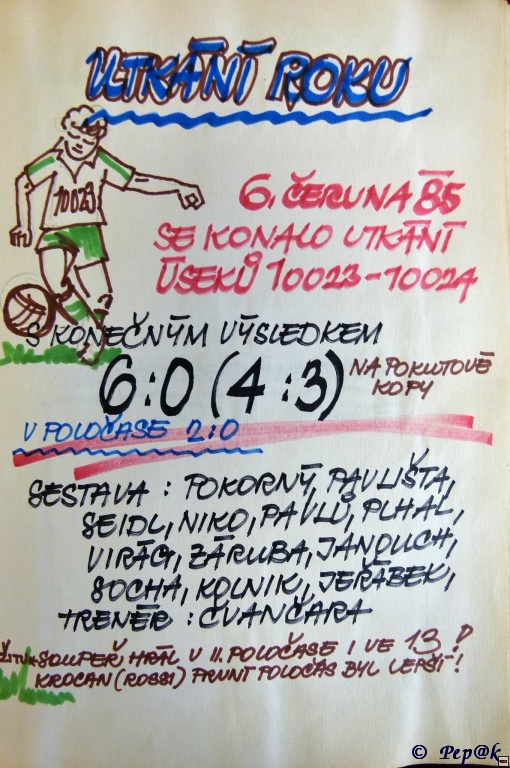 UTKÁNÍ ROKU
6. ČERVNA 85
SE KONALO UTKÁNÍ
ÚSEKŮ 10023-10024
10023
S KONEČNÝM VÝSLEDKEM
6:0 (4:3) NA POKUTOVÉ
KOPY
V POLOČASE 2:0
SESTAVA : POKORNÝ, PAVLIŠTA,
SEIDL, NIKO, PAVLŮ, PLHAL,
VIRÁG, ZÁRUBA, JANOUCH,
SOCHA, KOLNIK, JEŘÁBEK,
TRENÉR : ČVANČARA
SOUPEŘ HRÁL V II. POLOČASE I VE 13 !
KROCAN (ROSSI) PRVNÍ POLOČAS BYL LEPŠÍ !
© Pep@k